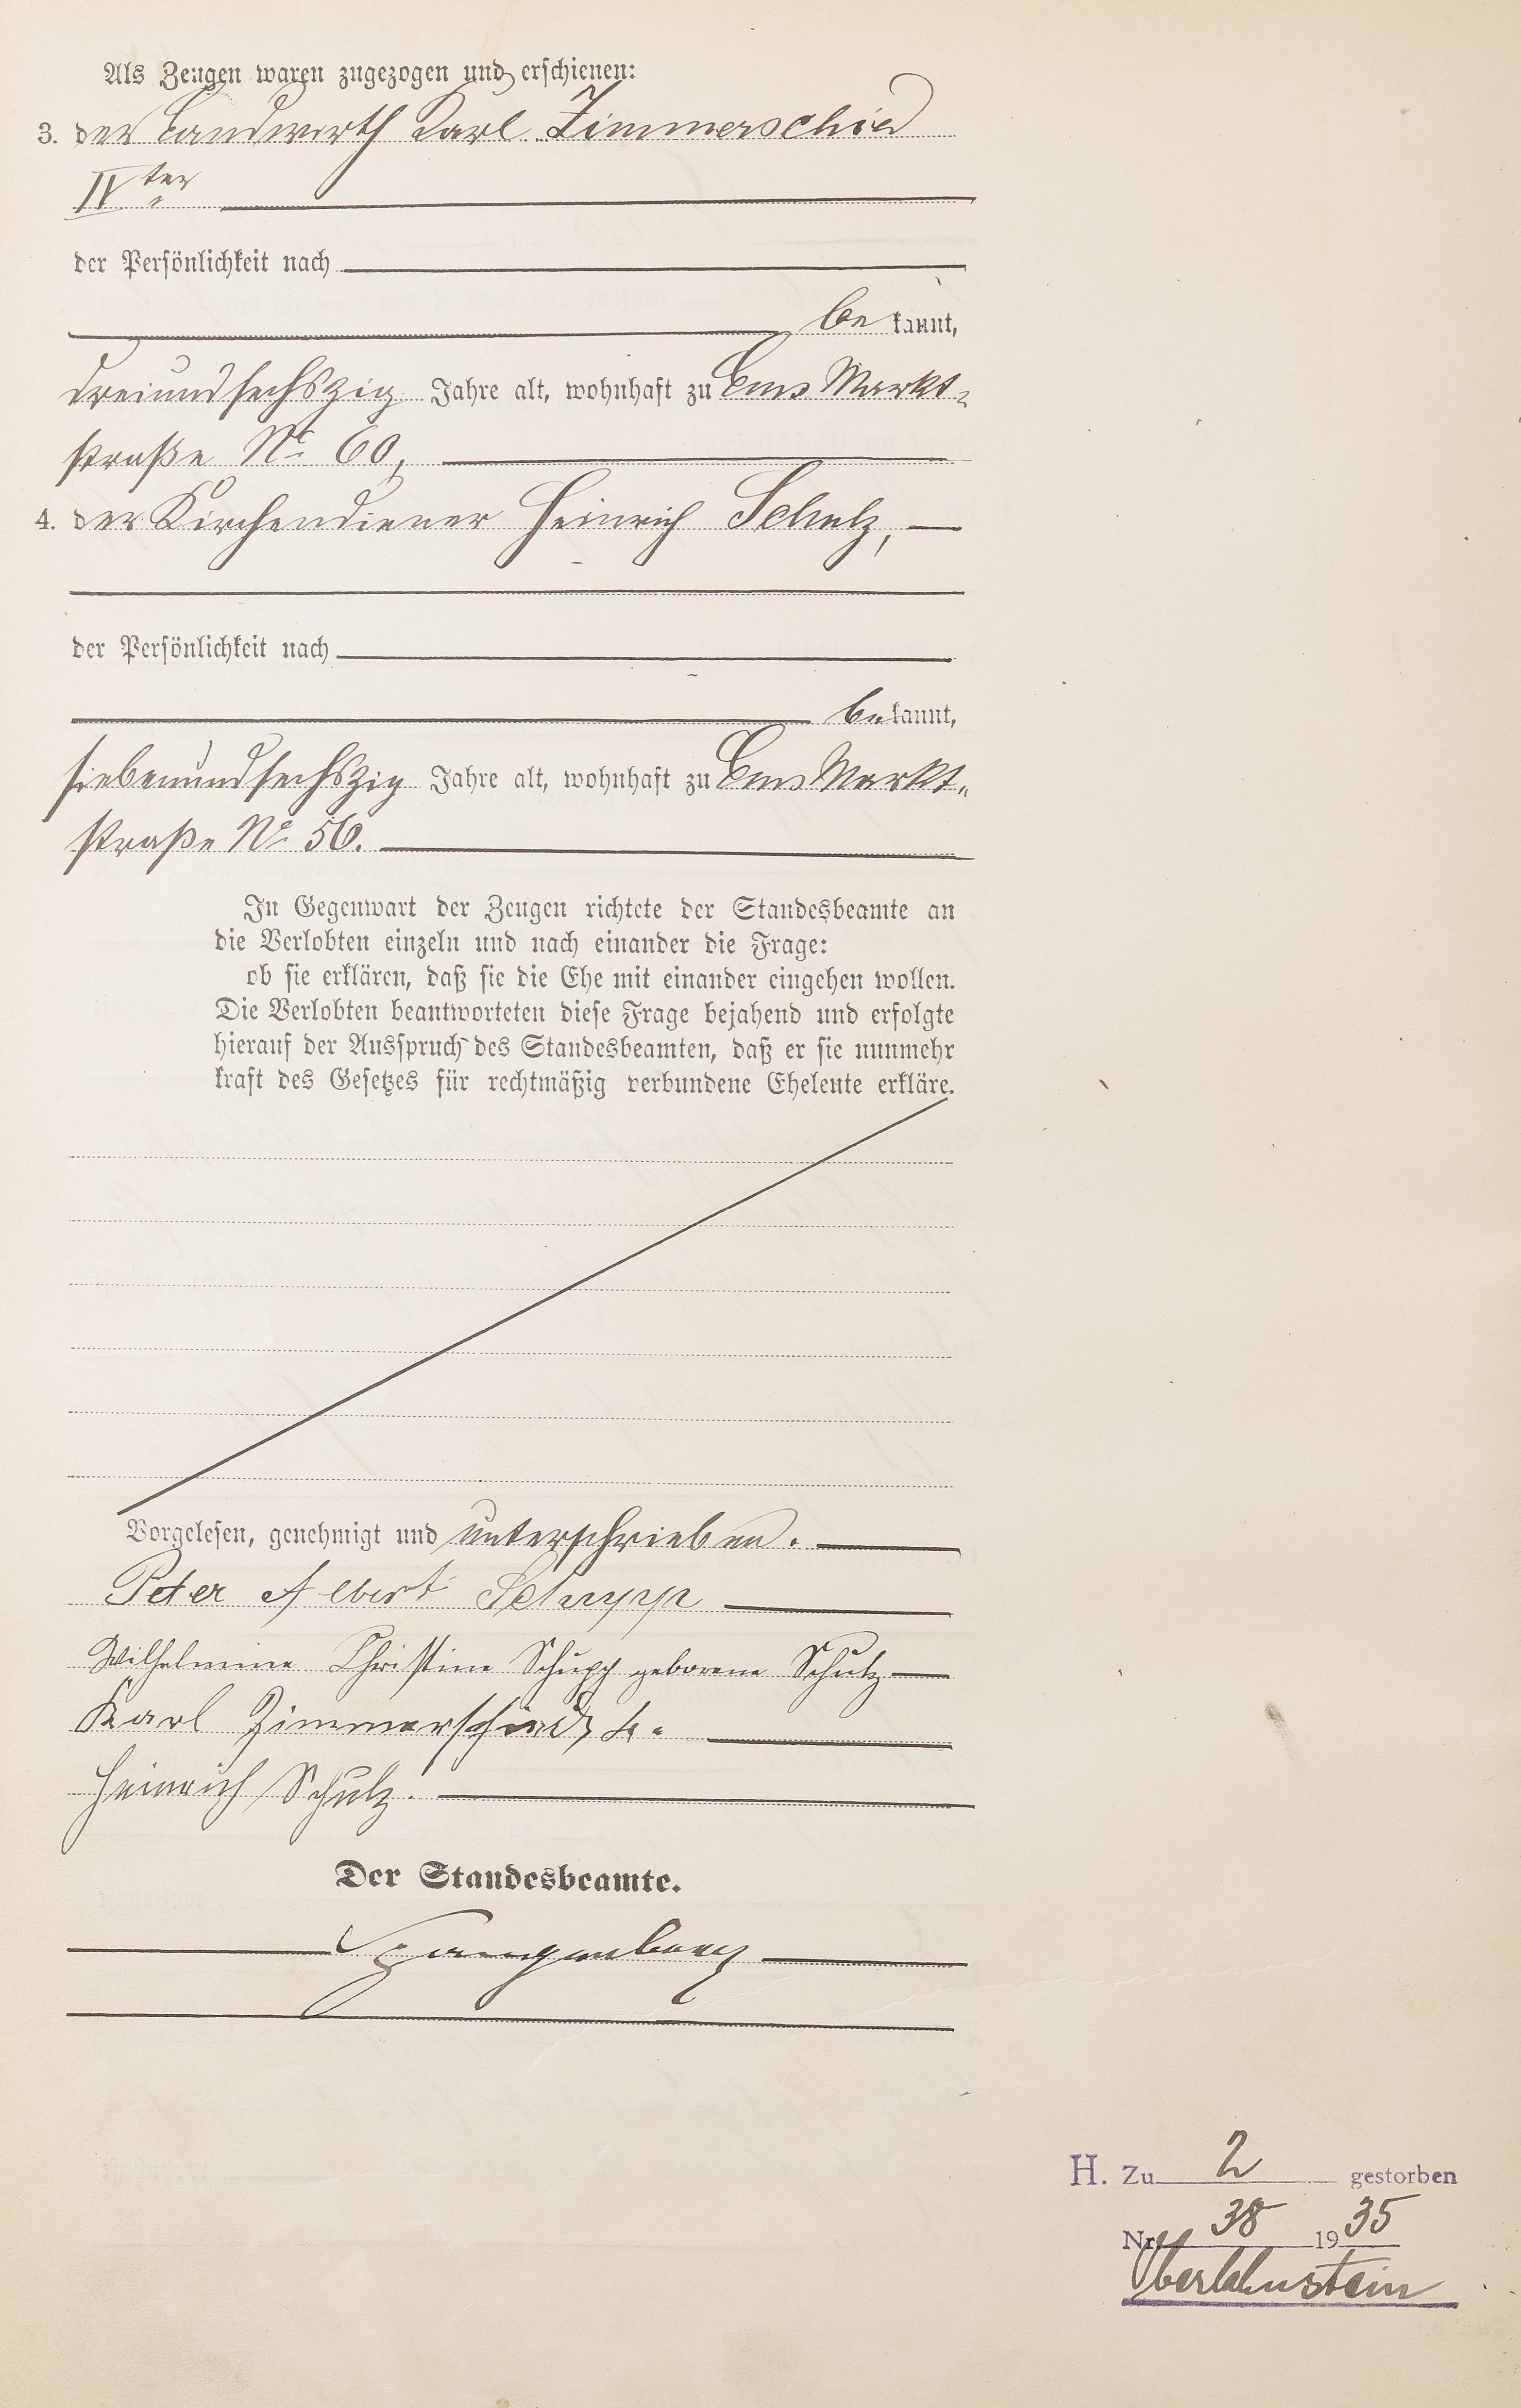 Als Zeugen waren zugezogen und erschienen:
3. der Landwirth Karl Zimmerschied
IV ter
der Persönlichkeit nach
be kannt,
dreiundsechszig Jahre alt, wohnhaft zu Ems Markt-
straße No 60,
4. der Kirchendiener Heinrich Schulz,
der Persönlichkeit nach
be kannt,
siebenundsechszig Jahre alt, wohnhaft zu Ems Markt-
straße No 56.
In Gegenwart der Zeugen richtete der Standesbeamte an
die Verlobten einzeln und nach einander die Frage:
ob sie erklären, daß sie die Ehe mit einander eingehen wollen.
Die Verlobten beantworteten diese Frage bejahend und erfolgte
hierauf der Ausspruch des Standesbeamten, daß er sie nunmehr
kraft des Gesetzes für rechtmäßig verbundene Eheleute erkläre.
Vorgelesen, genehmigt und unterschrieben.
Peter Albert Schupp
Wilhelmine Christine Schupp geborene Schulz
Karl Zimmerschied 4.
Heinrich Schulz.
Der Standesbeamte.
Spangenberg
H. Zu 2 gestorben
Nr. 38 1935
Oberlahnstein